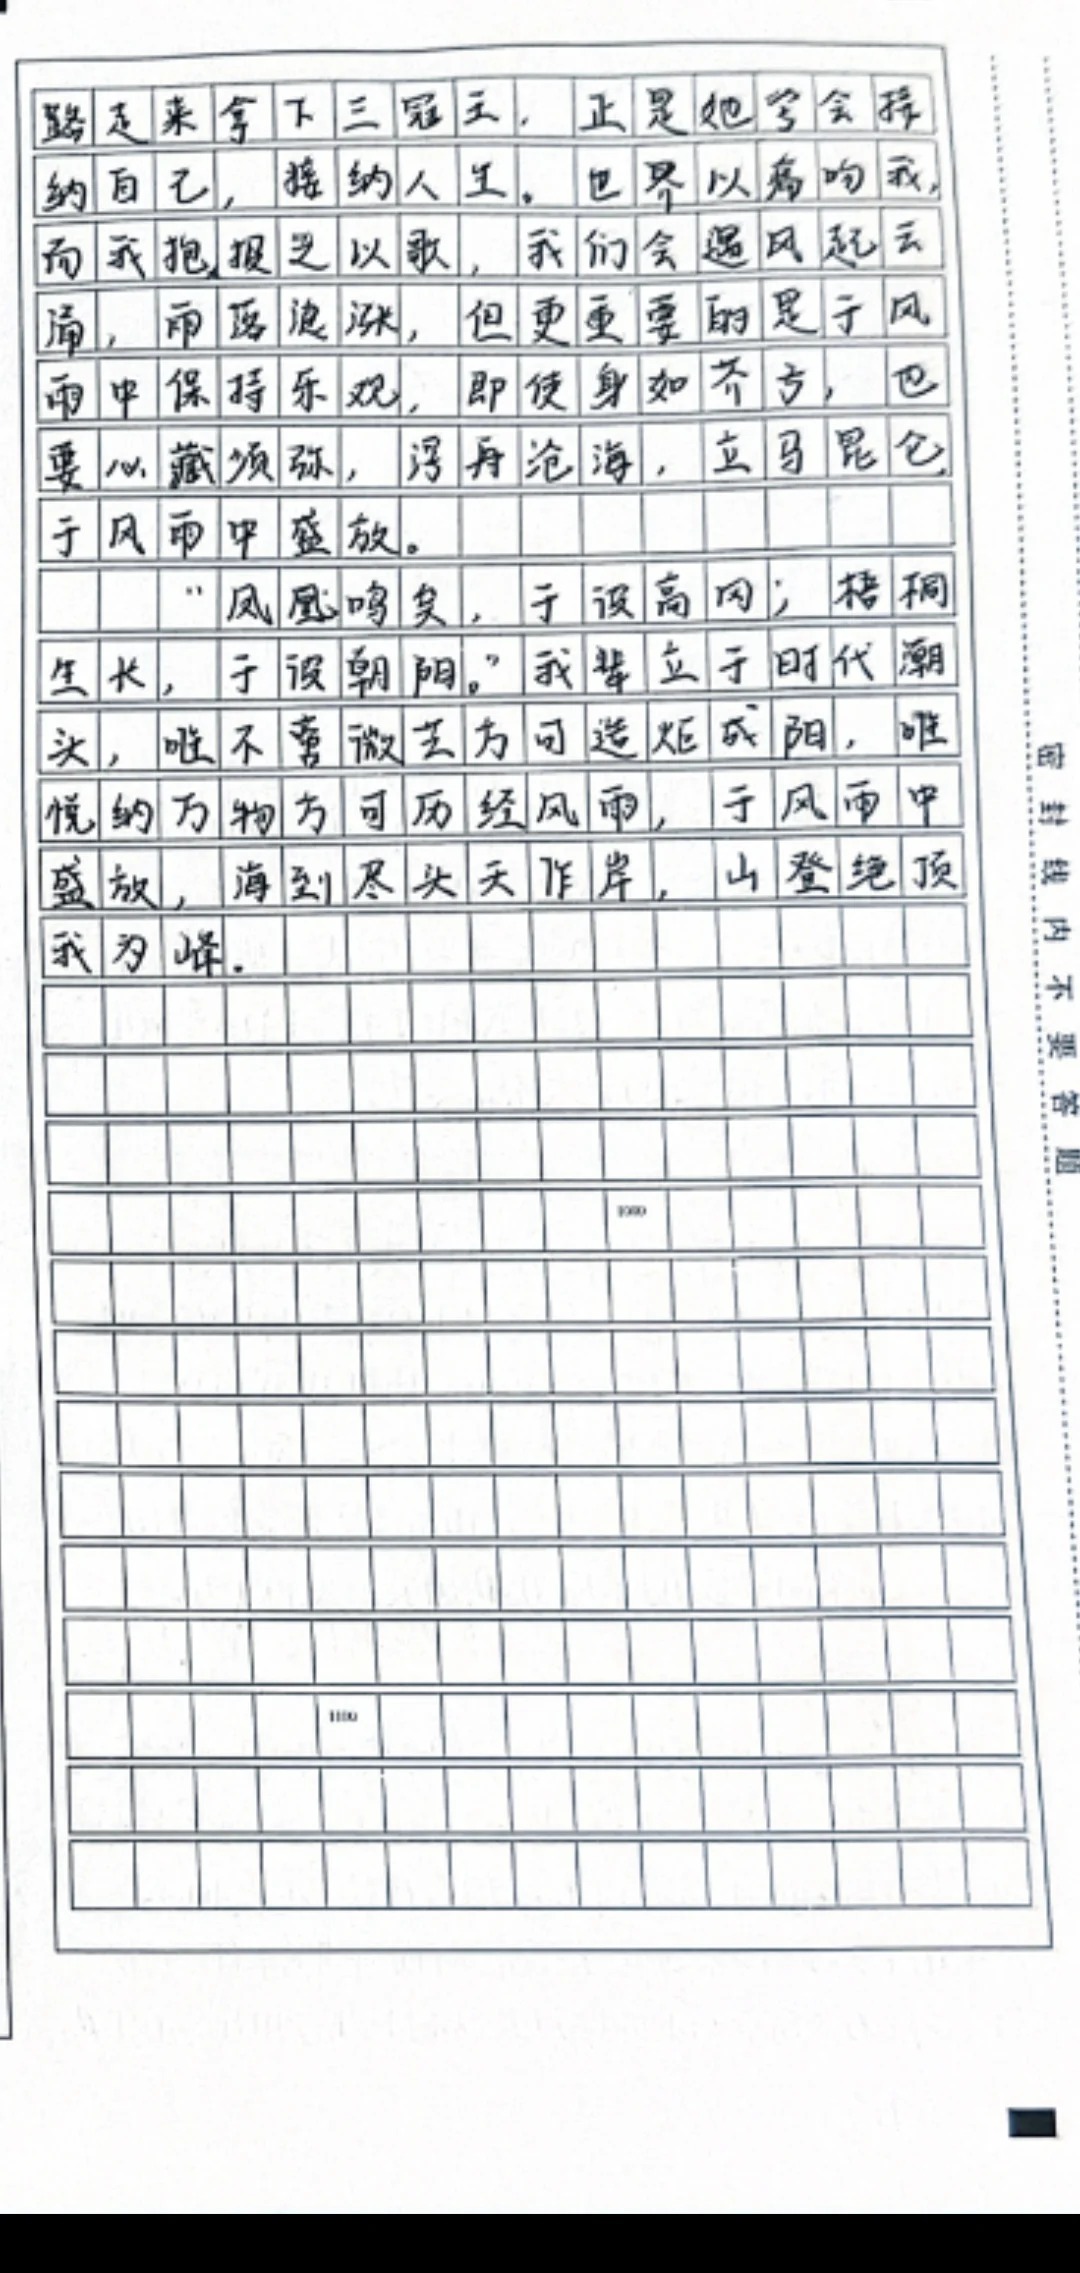 路走来拿下三冠王，正是她学会接
纳自己，接纳人生。世界以痛吻我，
而我抱报之以歌，我们会遇风起云
涌，雨落浪涨，但更重要的是于风
雨中保持乐观，即使身如芥子，也
要心藏须弥，浮舟沧海，立马昆仑，
于风雨中盛放。
“凤凰鸣矣，于设高冈；梧桐
生长，于设朝阳。”我辈立于时代潮
头，唯不弃微芒方可造炬成阳，唯
悦纳万物方可历经风雨，于风雨中
盛放，海到尽头天作岸，山登绝顶
我为峰。
1000
1100
密封线内不要答题